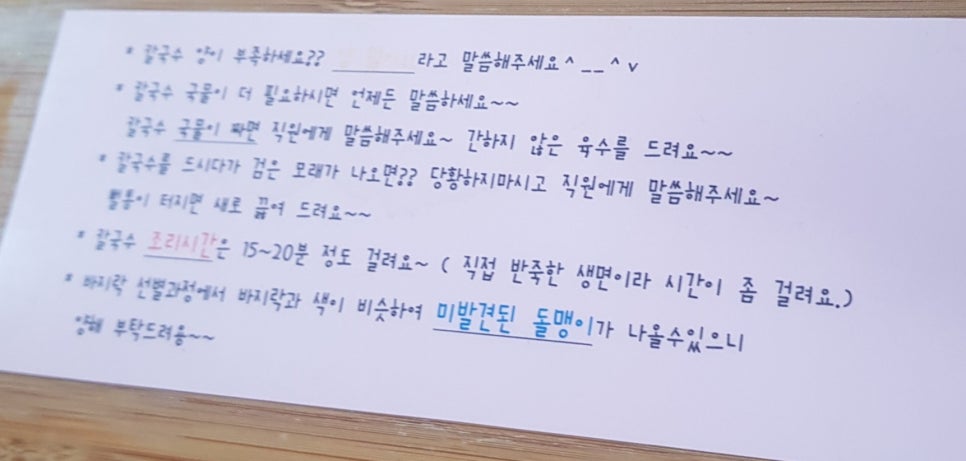 * 칼국수 양이 부족하세요?? 라고 말씀해주세요^__^v
* 칼국수 국물이 더 필요하시면 언제든 말씀하세요~~
칼국수 국물이 짜면 직원에게 말씀해주세요~ 간하지 않은 육수를 드려요~~
* 칼국수를 드시다가 검은 모래가 나오면?? 당황하지마시고 직원에게 말씀해주세요~
뻘통이 터지면 새로 끓여 드려요~~
* 칼국수 조리시간은 15~20분 정도 걸려요~ ( 직접 반죽한 생면이라 시간이 좀 걸려요.)
* 바지락 선별과정에서 바지락과 색이 비슷하여 미발견된 돌맹이가 나올수있으니
양해 부탁드려용~~